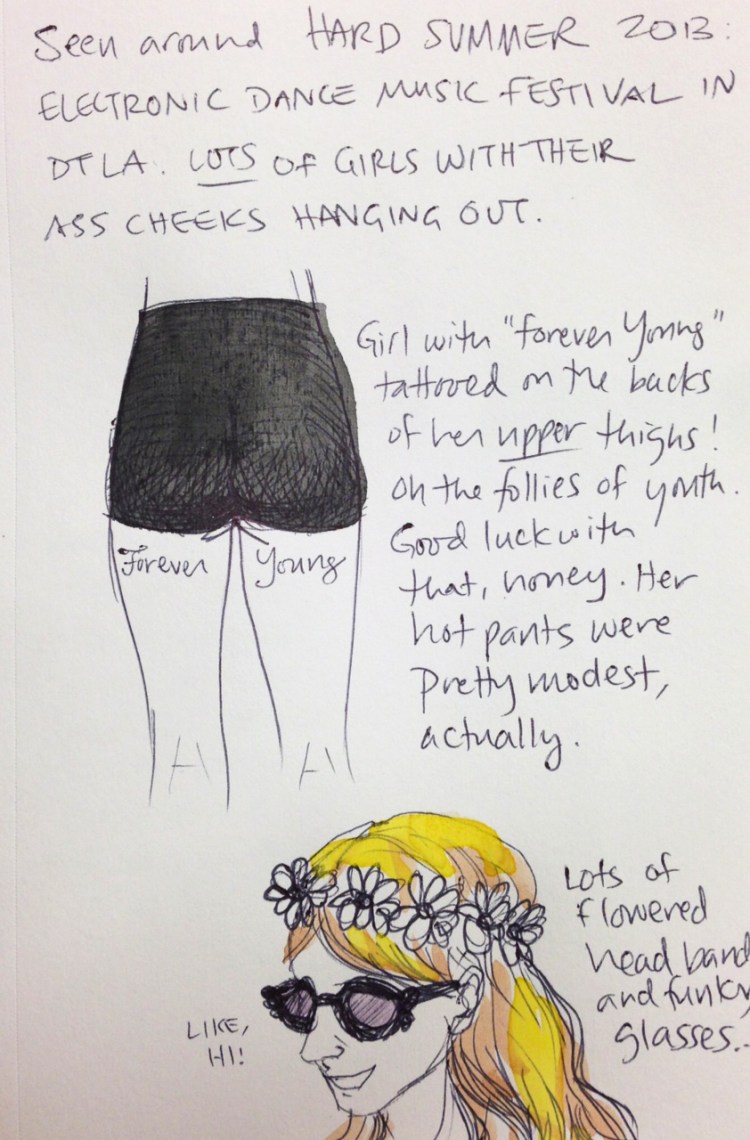 Seen around HARD SUMMER 2013:
ELECTRONIC DANCE MUSIC FESTIVAL IN
DTLA. LOTS OF GIRLS WITH THEIR
ASS CHEEKS HANGING OUT.
Girl with "forever Young"
tattooed on the backs
of her upper thighs!
Oh the follies of youth.
Good luck with
that, honey. Her
hot pants were
Pretty modest,
actually.
Forever Young
Lots of
flowered
head band
and funky
glasses..
LIKE,
HI!